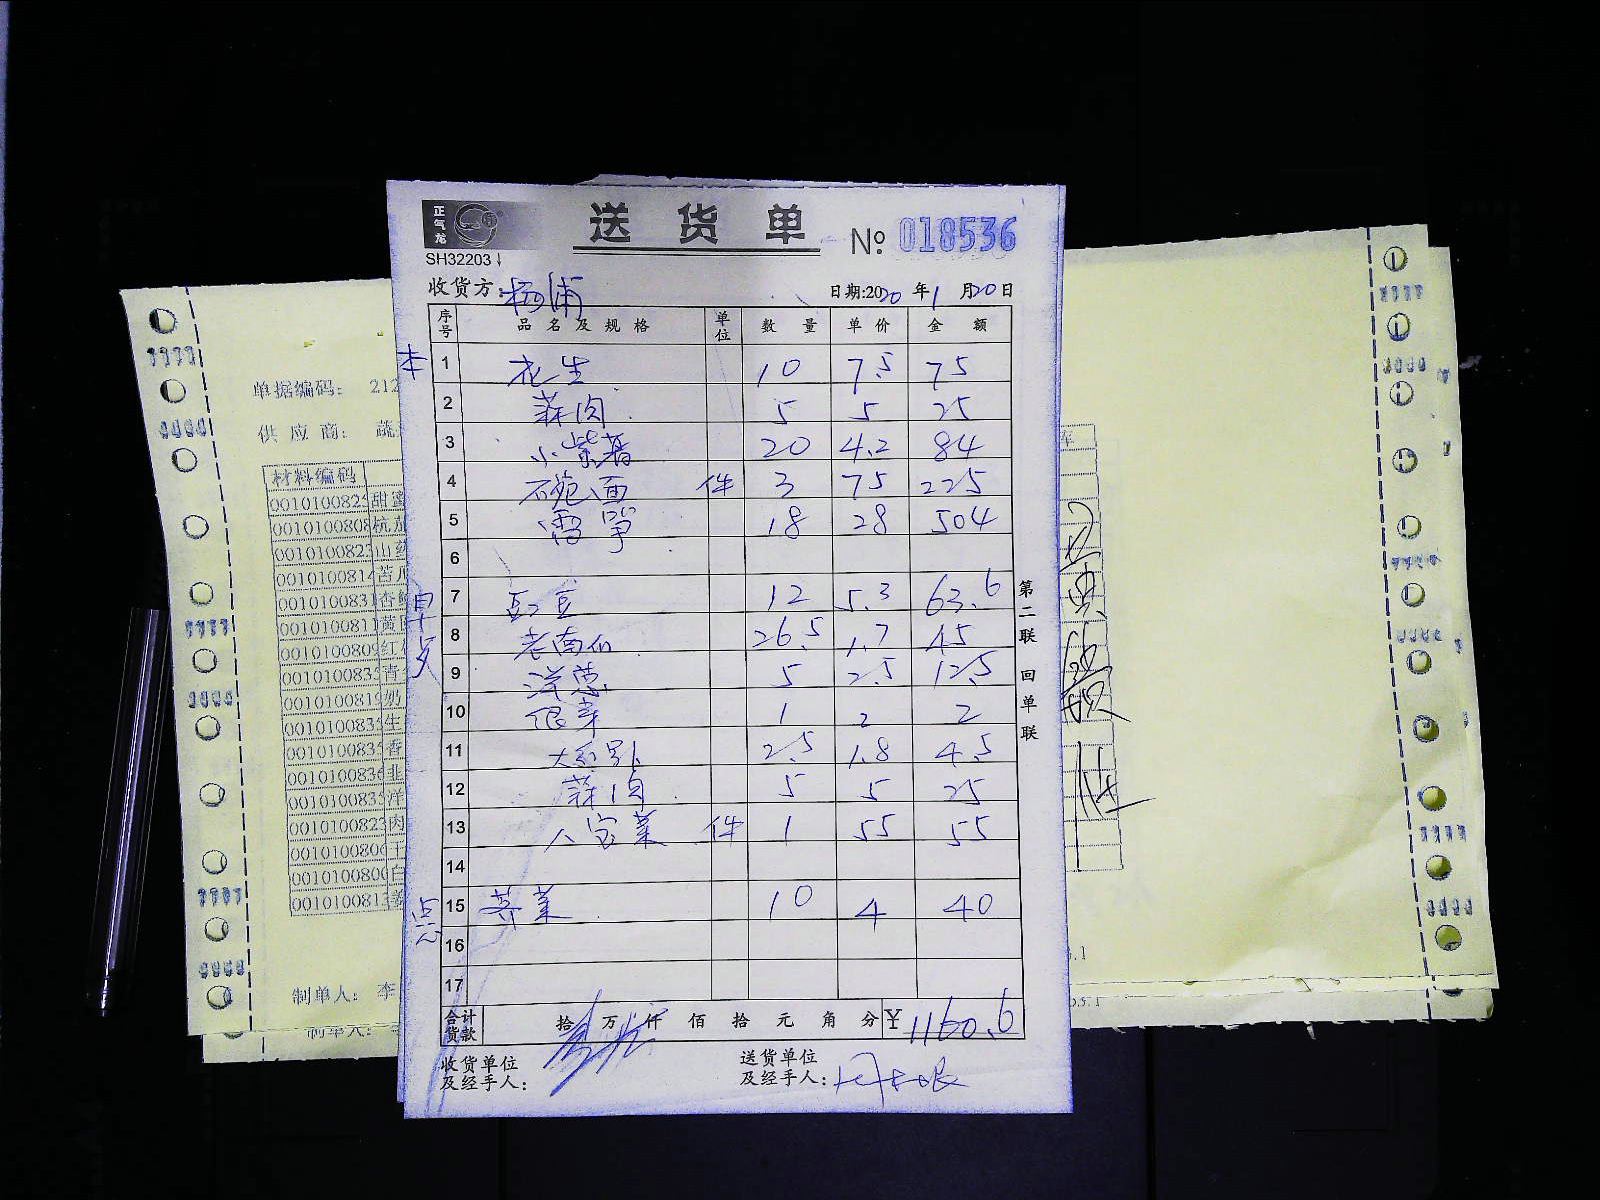 正气龙
送货单
No 018536
SH32203
收货方:杨浦
日期:2020年1月20日
序号 品名及规格 单位 数量 单价 金额
本 1 花生 10 7.5 75
2 蒜肉 5 5 25
3 小紫薯 20 4.2 84
4 碗面 件 3 75 225
5 雷笋 18 28 504
6
7 豇豆 12 5.3 63.6
8 老南瓜 26.5 1.7 45
9 洋葱 5 2.5 12.5
10 银芽 1 2 2
11 2.5 1.8 4.5
12 蒜肉 5 5 25
13 八宝菜 件 1 55 55
14
点心 15 荠菜 10 4 40
16
17
合计货款 拾 万 仟 佰 拾 元 角 分 ¥1160.6
收货单位及经手人:
送货单位及经手人:
第二联 回单联
单据编码: 212
供应商: 蔬
材料编码
001010082 甜蜜
001010080 杭茄
001010082 山药
001010081
001010083
001010081
001010080 红
001010083 青
001010081 奶
001010083 生
001010083 香
001010083 韭
001010083 洋
001010082 肉
001010080
001010080 白
001010081 姜
制单人: 李
制单人:
5.1